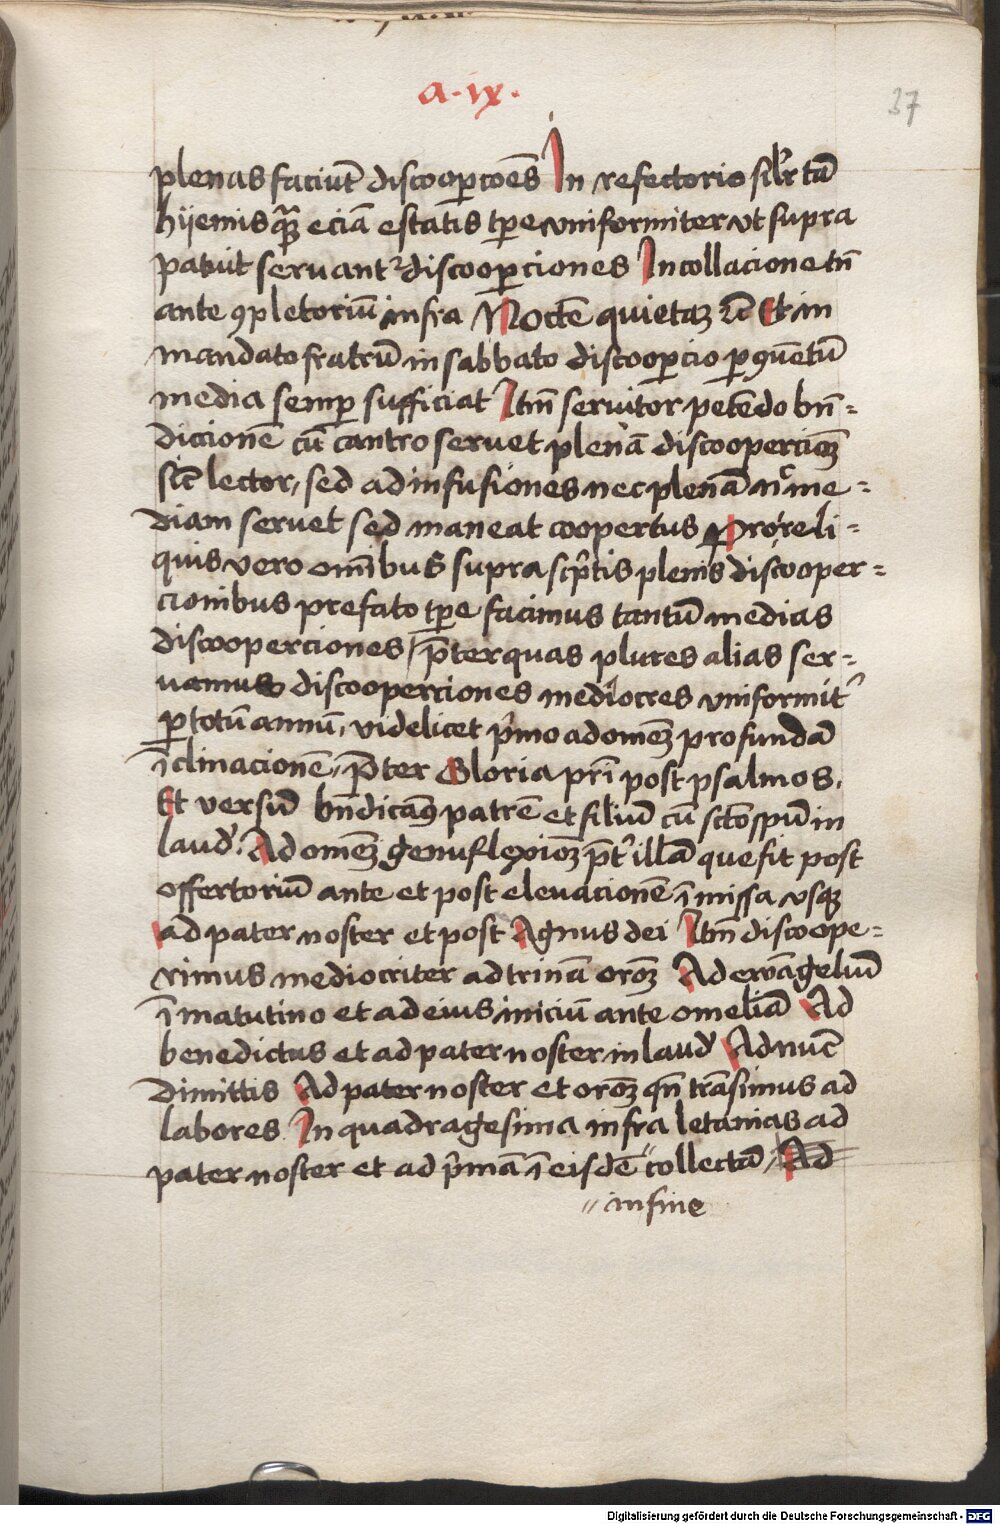 a · ix ·
37
plenas faciūt discooꝑcōes In refectorio silr̄ tā
hÿemis qꝫ eciā estatis tꝑe vniformiter vt supra
patuit seruant᷑ discooꝑciones In collacione tn̄
ante ꝯpletoriū infra Noctē quietaꝫ ⁊c̄ Et in
mandato fratrū in sabbato discooꝑcio ꝑ ꝯuētū
media semꝑ sufficiat Itm̄ seruitor petēdo bn̄=
dicionē cū cantro seruet plenā discoopercioꝫ
sic̄ lector, sed ad infusiones nec plenā nͨ me=
diam seruet sed maneat coopertus Pro reli=
quis vero om̄ibus supra scp̄tis plenis discooper=
cionibus prefato tꝑe facimus tantū medias
discooperciones, p̄ter quas plures alias ser=
uamus discooperciones mediocres vniformit᷑
ꝑ totū annū, videlicet p̄mo ad omēꝫ profundā
īclinacionē, p̄ter Gloria pr̄i post psalmos,
Et versū bn̄dicamꝰ patrē et filiū cū sctō spū in
laudꝭ. Ad omēꝫ genuflexioꝫ p̄t᷑ illā que fit post
offertoriū ante et post eleuacionē ī missa vsqꝫ
ad pater noster et post Agnus dei Itm̄ discoope=
rimus mediocriter ad trinā oroꝫ Ad ewāgeliū
ī matutino et ad eius iniciū ante omeliā Ad
benedictus et ad pater noster in laudꝭ Ad nūc
dimittis Ad pater noster et oroꝫ qn̄ trāsimus ad
labores In quadragesima infra letanias ad
pater noster et ad p̄mā ī eisdē " collectā, Ad
" in fine
Digitalisierung gefördert durch die Deutsche Forschungsgemeinschaft - DFG